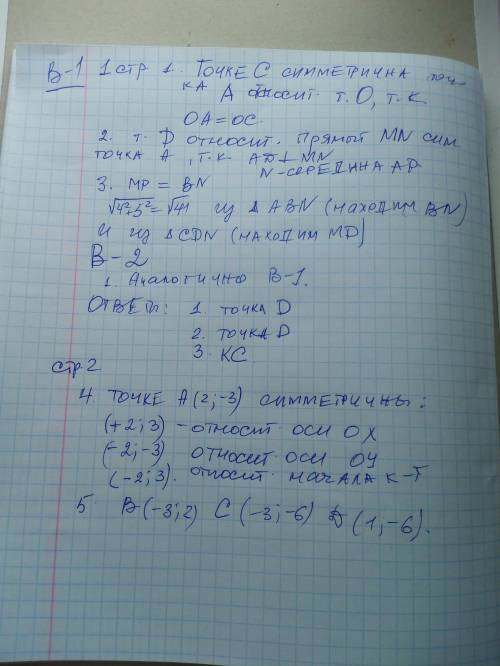 В-1 1 стр 1. ТОЧКЕ С СИММЕТРИЧНА точ-
КА А относит. т. О, т.к
ОА=ОС.
2. т. D относит. прямой MN сим
точка А, т.к. AD⊥MN
N-СЕРЕДИНА AD
3. MD = BN
√4²+5²=√41 из △ ABN (находим BN)
и из △CDN (находим MD)
В-2
1. Аналогично В-1.
ОТВЕТЫ: 1. точка D
2. точка D
3. КС
стр.2
4. ТОЧКЕ А(2;-3) СИММЕТРИЧНЫ:
(+2;3) - относит оси ОХ
(-2;-3) относит оси ОУ
(-2;3). относит. начала к-т
5. В(-3;2) С(-3;-6) D(1,-6).